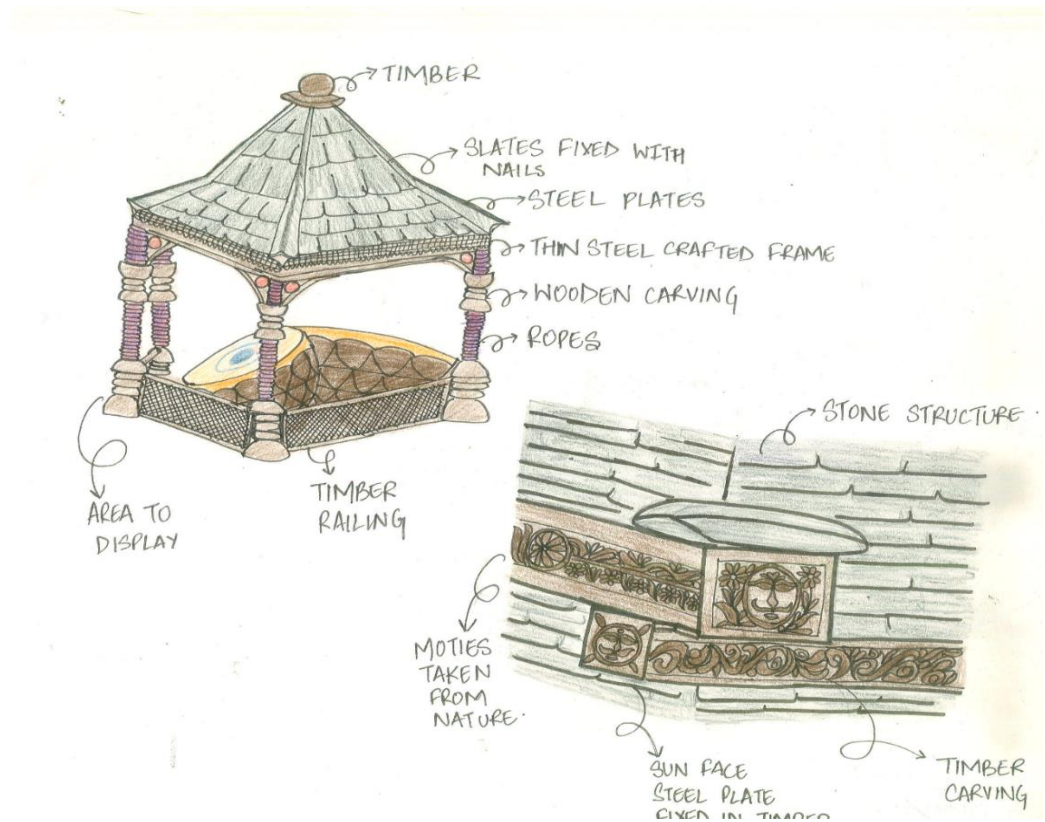 TIMBER
SLATES FIXED WITH
NAILS
STEEL PLATES
THIN STEEL CRAFTED FRAME
WOODEN CARVING
ROPES
AREA TO
DISPLAY
TIMBER
RAILING
STONE STRUCTURE.
MOTIES
TAKEN
FROM
NATURE.
SUN FACE
STEEL PLATE
FIXED IN TIMBER
TIMBER
CARVING